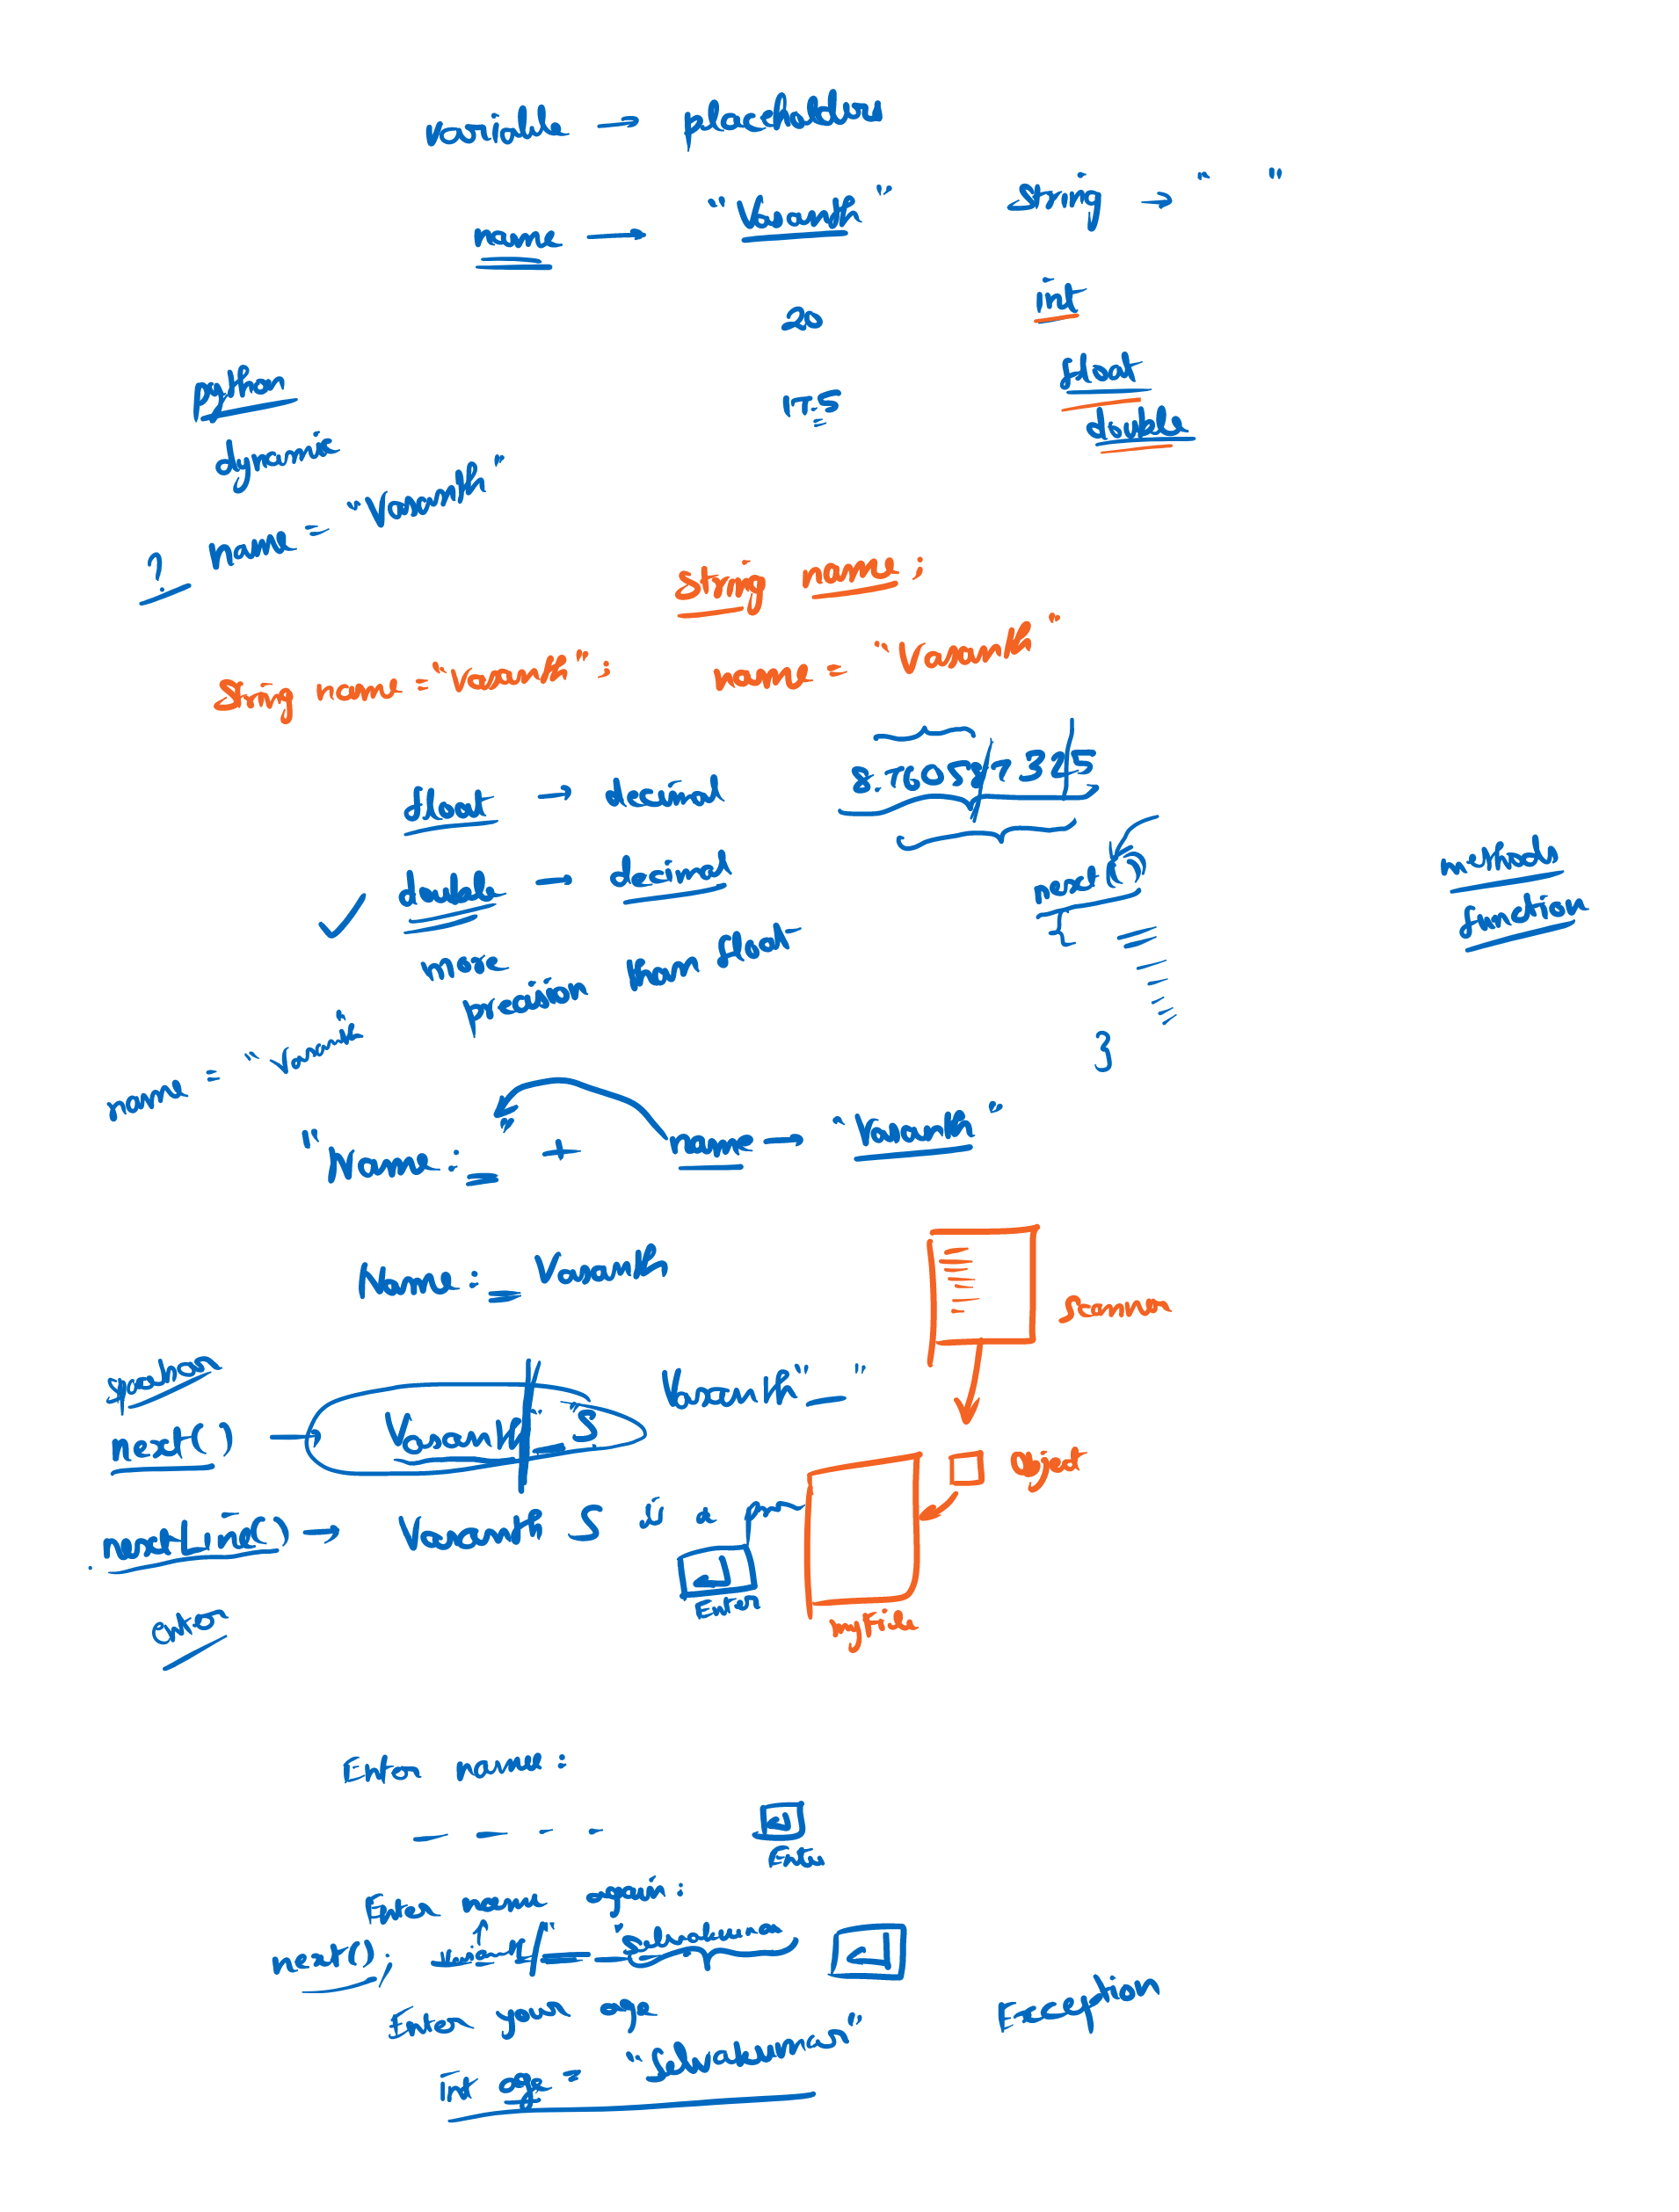 variable → placeholders
name — "Vasanth" String → " "
20 int
17.5 float
double
python
dynamic
? name = "Vasanth"
String name;
String name = "Vasanth"; name = "Vasanth"
float → decimal 8.760587325
double — decimal next()
{
methods
function
more
precision than float
}
name = "Vasanth
"Name: " + name → "Vasanth"
Name: Vasanth
Scanner
spacebar
next() → Vasanth " " S Vasanth " "
Object
nextLine() → Vasanth S is a
Enter
myFile
enter
Enter name:
Enter
Enter name again:
next(); Vasanth " " Selvakumar
Enter your age
Exception
int age = "Selvakumar"